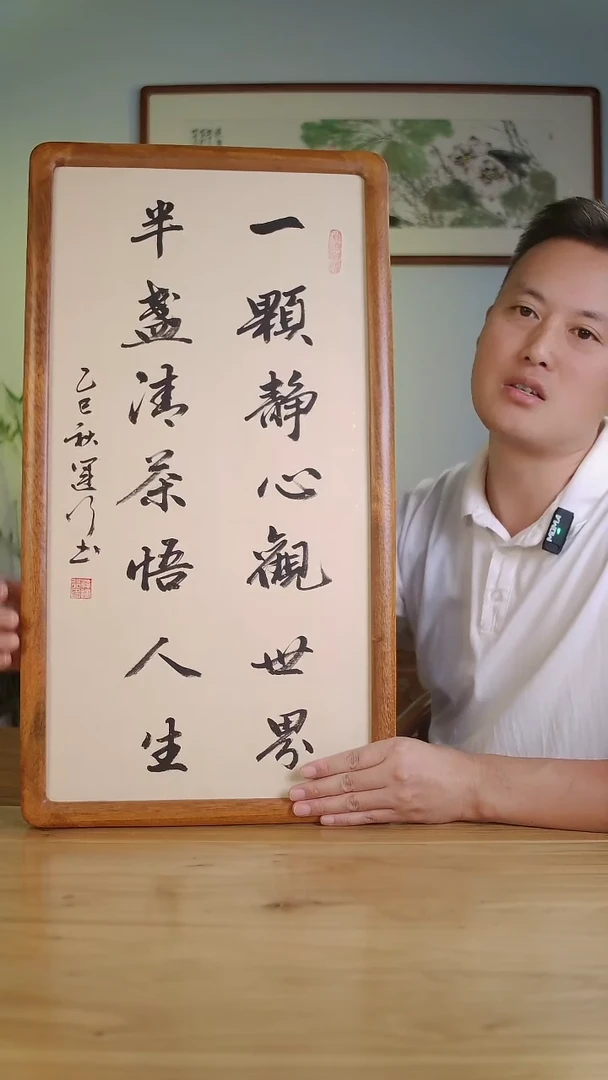 一顆静心觀世界
半盞清茶悟人生
乙巳秋運川书
MOMA